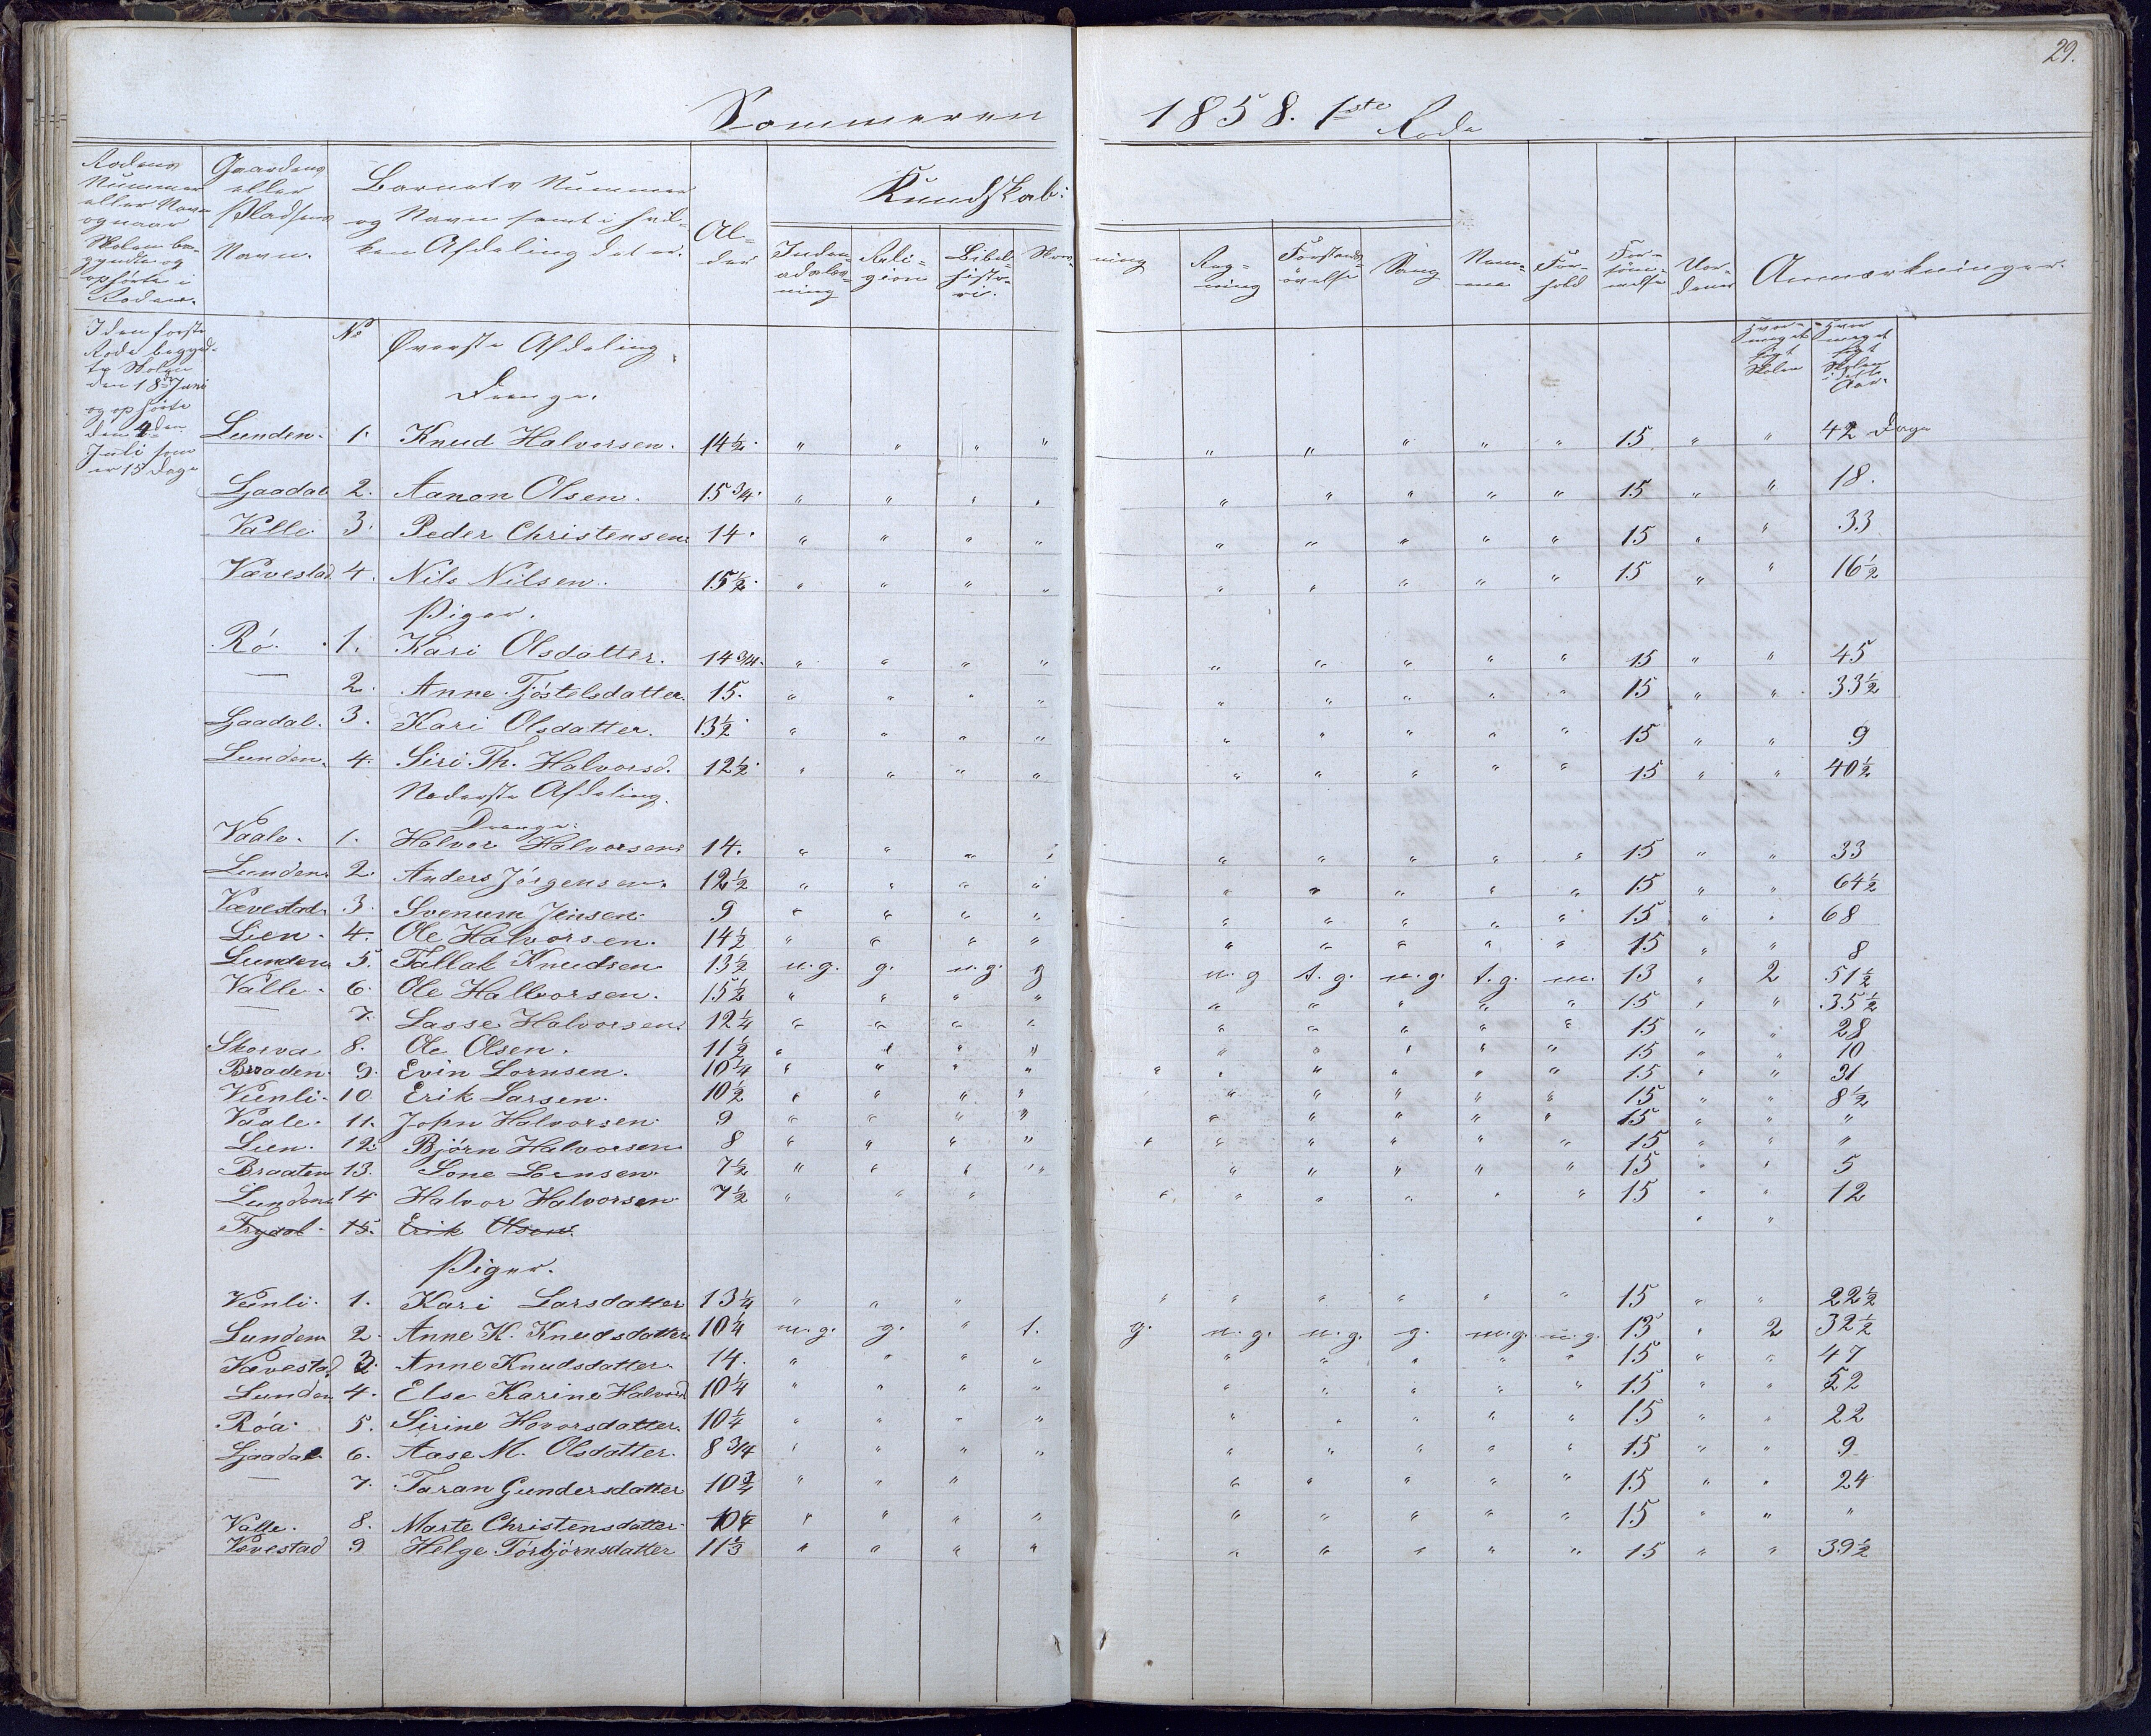 29.
Sommeren 1858. 1ste Rode
Rodens Nummer eller Navn og naar Skolen begyndte og ophørte i Roden.
Gaardens eller Pladsens Navn.
Barnets Nummer og Navn samt i hvilken Afdeling det er.
Alder
Kundskab:
Indenadslæsning
Religion
Bibelhistorie.
Skrivning
Regning
Forstandsøvelse
Sang
Nemme
Forhold
Forsømmelse
Anmærkninger.
I den første Rode begyndte Skolen den 18de Juni og ophørte den 4den Juli som er 15 Dage
No
Øverste Afdeling.
Hvor meget søgt Skolen
Hvor meget søgt Skolen i dette Aar.
Drenge.
Lunden. 1. Knud Halvorsen. 14½. " " " " " " " " " 15 " " 42 Dage
Ljaadal 2. Aanon Olsen. 15¾. " " " " " " " " " 15 " " 18.
Valle 3. Peder Christensen. 14. " " " " " " " " " 15 " " 33
Vævestad 4. Nils Nilsen. 15½. " " " " " " " " " 15 " " 16½
Piger.
Rö. 1. Kari Olsdatter. 14¾. " " " " " " " " " 15 " " 45
— 2. Anne Tjöstelsdatter. 15. " " " " " " " " " 15 " " 33½
Ljaadal. 3. Kari Olsdatter. 13½ " " " " " " " " " 15 " " 9
Lunden. 4. Siri Th. Halvorsd. 12½. " " " " " " " " " 15 " " 40½
Nederste Afdeling.
Drenge.
Vaale. 1. Halvor Halvorsen. 14. " " " " " " " " " 15 " " 33
Lunden. 2. Anders Jörgensen. 12½ " " " " " " " " " 15 " " 64½
Vævestad. 3. Svenum Jensen. 9 " " " " " " " " " 15 " " 68
Lien. 4. Ole Halvorsen. 14½ " " " " " " " " " 15 " " 8
Lunden 5. Tallak Knudsen 13½ m.g. g. m.g. g m.g t.g. m.g. t.g. m. 13 " 2 51½
Valle. 6. Ole Hallvorsen. 15½ " " " " " " " " " 15 " " 35½
— 7. Lasse Halvorsen. 12¼ " " " " " " " " " 15 " " 28
Skorva 8. Ole Olsen. 11½ " " " " " " " " " 15 " " 10
Braaden. 9. Evin Lornsen. 10¼ " " " " " " " " " " 15 " " 31
Veenli. 10. Erik Larsen. 10½ " " " " " " " " " 15 " " 8½
Vaale. 11. John Halvorsen. 9 " " " " " " " " " 15 " " "
Lien. 12. Björn Halvorsen 8 " " " " " " " " " " 15 " " "
Braaten 13. Lone Lornsen. 7½ " " " " " " " " " 15 " " 5
Lunden. 14. Halvor Halvorsen 7½ " " " " " " " " " 15 " " 12
Trydal. 15. Erik Olsen. " "
Piger.
Veenli. 1. Kari Larsdatter 13¼ " " " " " " " " " 15 " " 22½
Lunden 2. Anne K. Knudsdatter 10¼ m.g. g. " t. g. m.g. m.g. g. m.g. m.g. 13 " 2 32½
Vævestad. 3. Anne Knudsdatter. 14. " " " " " " " " " 15 " " 47
Lunden 4. Else Karine Halvorsd 10¼ " " " " " " " " " 15 " " 52
Röa. 5. Sirine Hovorsdatter. 10¼ " " " " " " " " " 15 " " 22
Ljaadal 6. Aase M. Olsdatter. 8¾ " " " " " " " " " 15 " " 9
— 7. Taran Gundersdatter 10¾ " " " " " " " " 15 " " 24
Valle. 8. Marte Christensdatter 10¼ " " " " " " " " " 15 " " "
Vævestad 9 Helge Törbjörnsdatter 11⅓ " " " " " " " " " 15 " " 39½